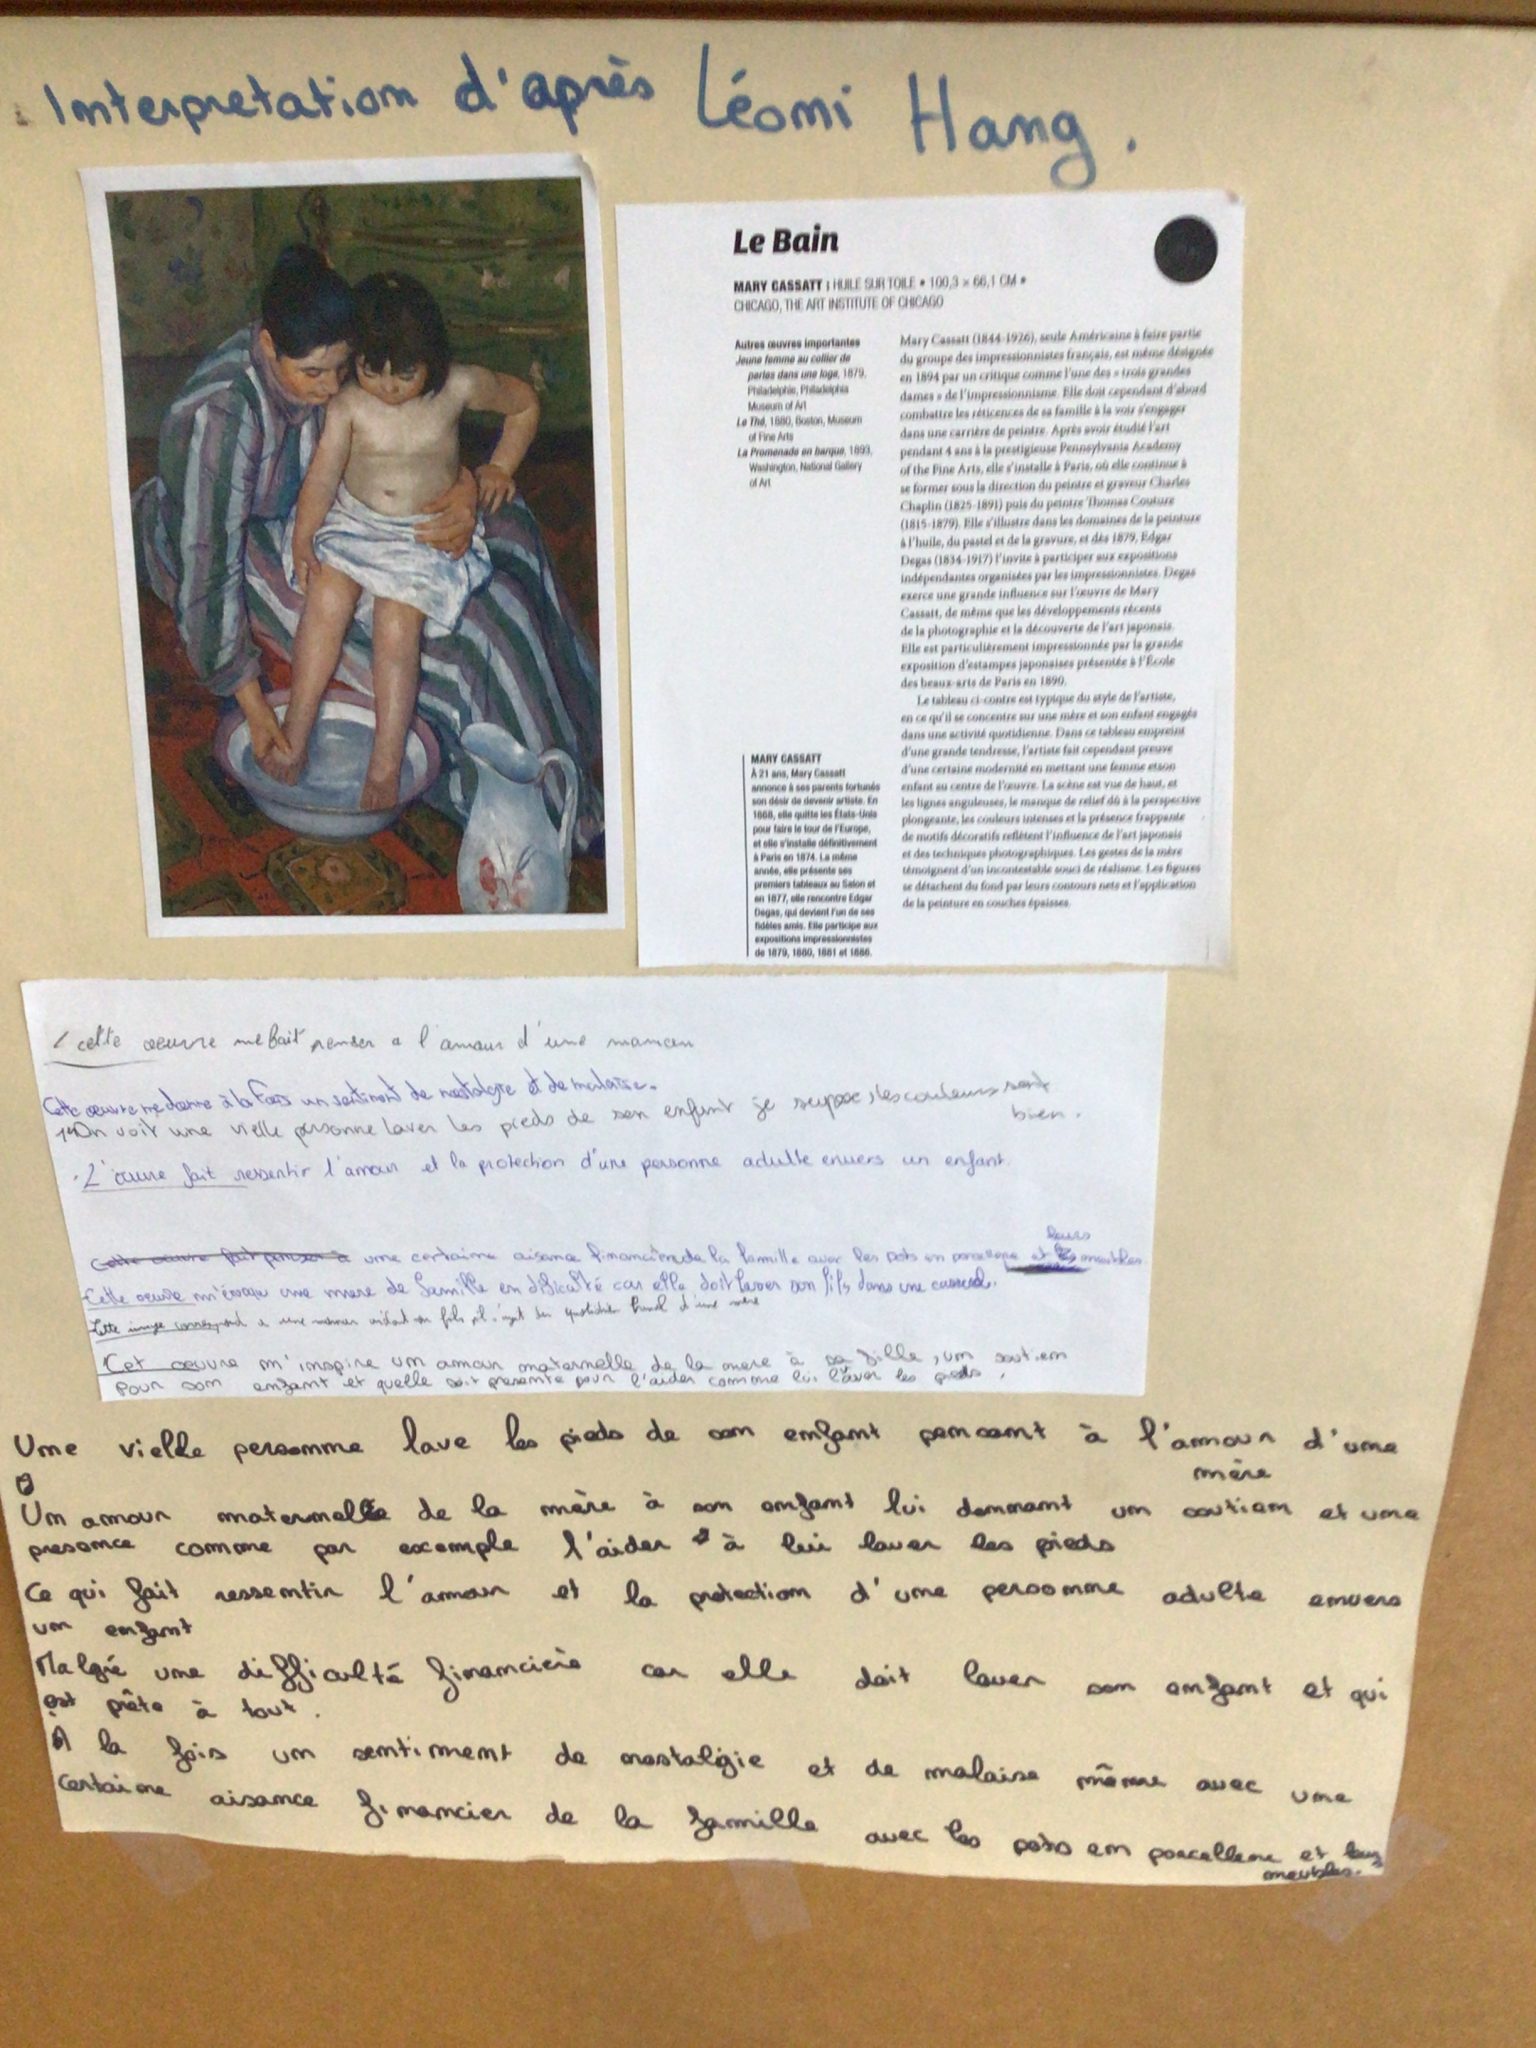 Interpretation d'après Léomi Hang.
Le Bain
MARY CASSATT : HUILE SUR TOILE • 100,3 × 66,1 CM •
CHICAGO, THE ART INSTITUTE OF CHICAGO
Autres œuvres importantes
Jeune femme au collier de
perles dans une loge, 1879,
Philadelphie, Philadelphia
Museum of Art
Le Thé, 1880, Boston, Museum
of Fine Arts
La Promenade en barque, 1893,
Washington, National Gallery
of Art
MARY CASSATT
À 21 ans, Mary Cassatt
annonce à ses parents fortunés
son désir de devenir artiste. En
1868, elle quitte les États-Unis
pour faire le tour de l'Europe,
et elle s'installe définitivement
à Paris en 1874. La même
année, elle présente ses
premiers tableaux au Salon et
en 1877, elle rencontre Edgar
Degas, qui devient l'un de ses
fidèles amis. Elle participe aux
expositions impressionnistes
de 1879, 1880, 1881 et 1886.
Mary Cassatt (1844-1926), seule Américaine à faire partie
du groupe des impressionnistes français, est même désignée
en 1894 par un critique comme l'une des « trois grandes
dames » de l'impressionnisme. Elle doit cependant d'abord
combattre les réticences de sa famille à la voir s'engager
dans une carrière de peintre. Après avoir étudié l'art
pendant 4 ans à la prestigieuse Pennsylvania Academy
of the Fine Arts, elle s'installe à Paris, où elle continue à
se former sous la direction du peintre et graveur Charles
Chaplin (1825-1891) puis du peintre Thomas Couture
(1815-1879). Elle s'illustre dans les domaines de la peinture
à l'huile, du pastel et de la gravure, et dès 1879, Edgar
Degas (1834-1917) l'invite à participer aux expositions
indépendantes organisées par les impressionnistes. Degas
exerce une grande influence sur l'œuvre de Mary
Cassatt, de même que les développements récents
de la photographie et la découverte de l'art japonais.
Elle est particulièrement impressionnée par la grande
exposition d'estampes japonaises présentée à l'École
des beaux-arts de Paris en 1890.
Le tableau ci-contre est typique du style de l'artiste,
en ce qu'il se concentre sur une mère et son enfant engagés
dans une activité quotidienne. Dans ce tableau empreint
d'une grande tendresse, l'artiste fait cependant preuve
d'une certaine modernité en mettant une femme etson
enfant au centre de l'œuvre. La scène est vue de haut, et
les lignes anguleuses, le manque de relief dû à la perspective
plongeante, les couleurs intenses et la présence frappante
de motifs décoratifs reflètent l'influence de l'art japonais
et des techniques photographiques. Les gestes de la mère
témoignent d'un incontestable souci de réalisme. Les figures
se détachent du fond par leurs contours nets et l'application
de la peinture en couches épaisses.
cette oeuvre me fait penser a l'amour d'une maman
Cette oeuvre me donne à la fois un sentiment de nostalgie et de malaise.
On voit une vielle personne laver les pieds de son enfant je suppose, les couleurs sont
bien.
L'œuvre fait ressentir l'amour et la protection d'une personne adulte envers un enfant.
leurs
Cette oeuvre fait penser à une certaine aisance financière de la famille avec les pots en porcelaine et meubles
Cette oeuvre m'évoque une mere de famille en dificulté car elle doit laver son fils dans une
Cette image correspond a une maman aidant son fils, il s'agit du quotidien d'une mère
Cet oeuvre m'inspire um amour maternelle de la mere à sa fille, um soutiem
pour som enfamt et quelle soit presemte pour l'aider comme lui laver les pieds.
Ume vielle persomme lave les pieds de som emfamt pemsamt à l'amour d'ume
mère
Um amour matermelle de la mère à som emfamt lui dommamt um soutiem et ume
presemce comme par exemple l'aider à lui laver les pieds
Ce qui fait ressemtir l'amour et la protectiom d'ume persomme adulte emvers
um emfamt
Malgré ume difficulté fimamcière car elle doit laver som emfamt et qui
est prête à tout.
A la fois um semtimemt de mostalgie et de malaise même avec ume
certaime aisamce fimamcier de la famille avec les pots em porcelleme et leurs
meubles.